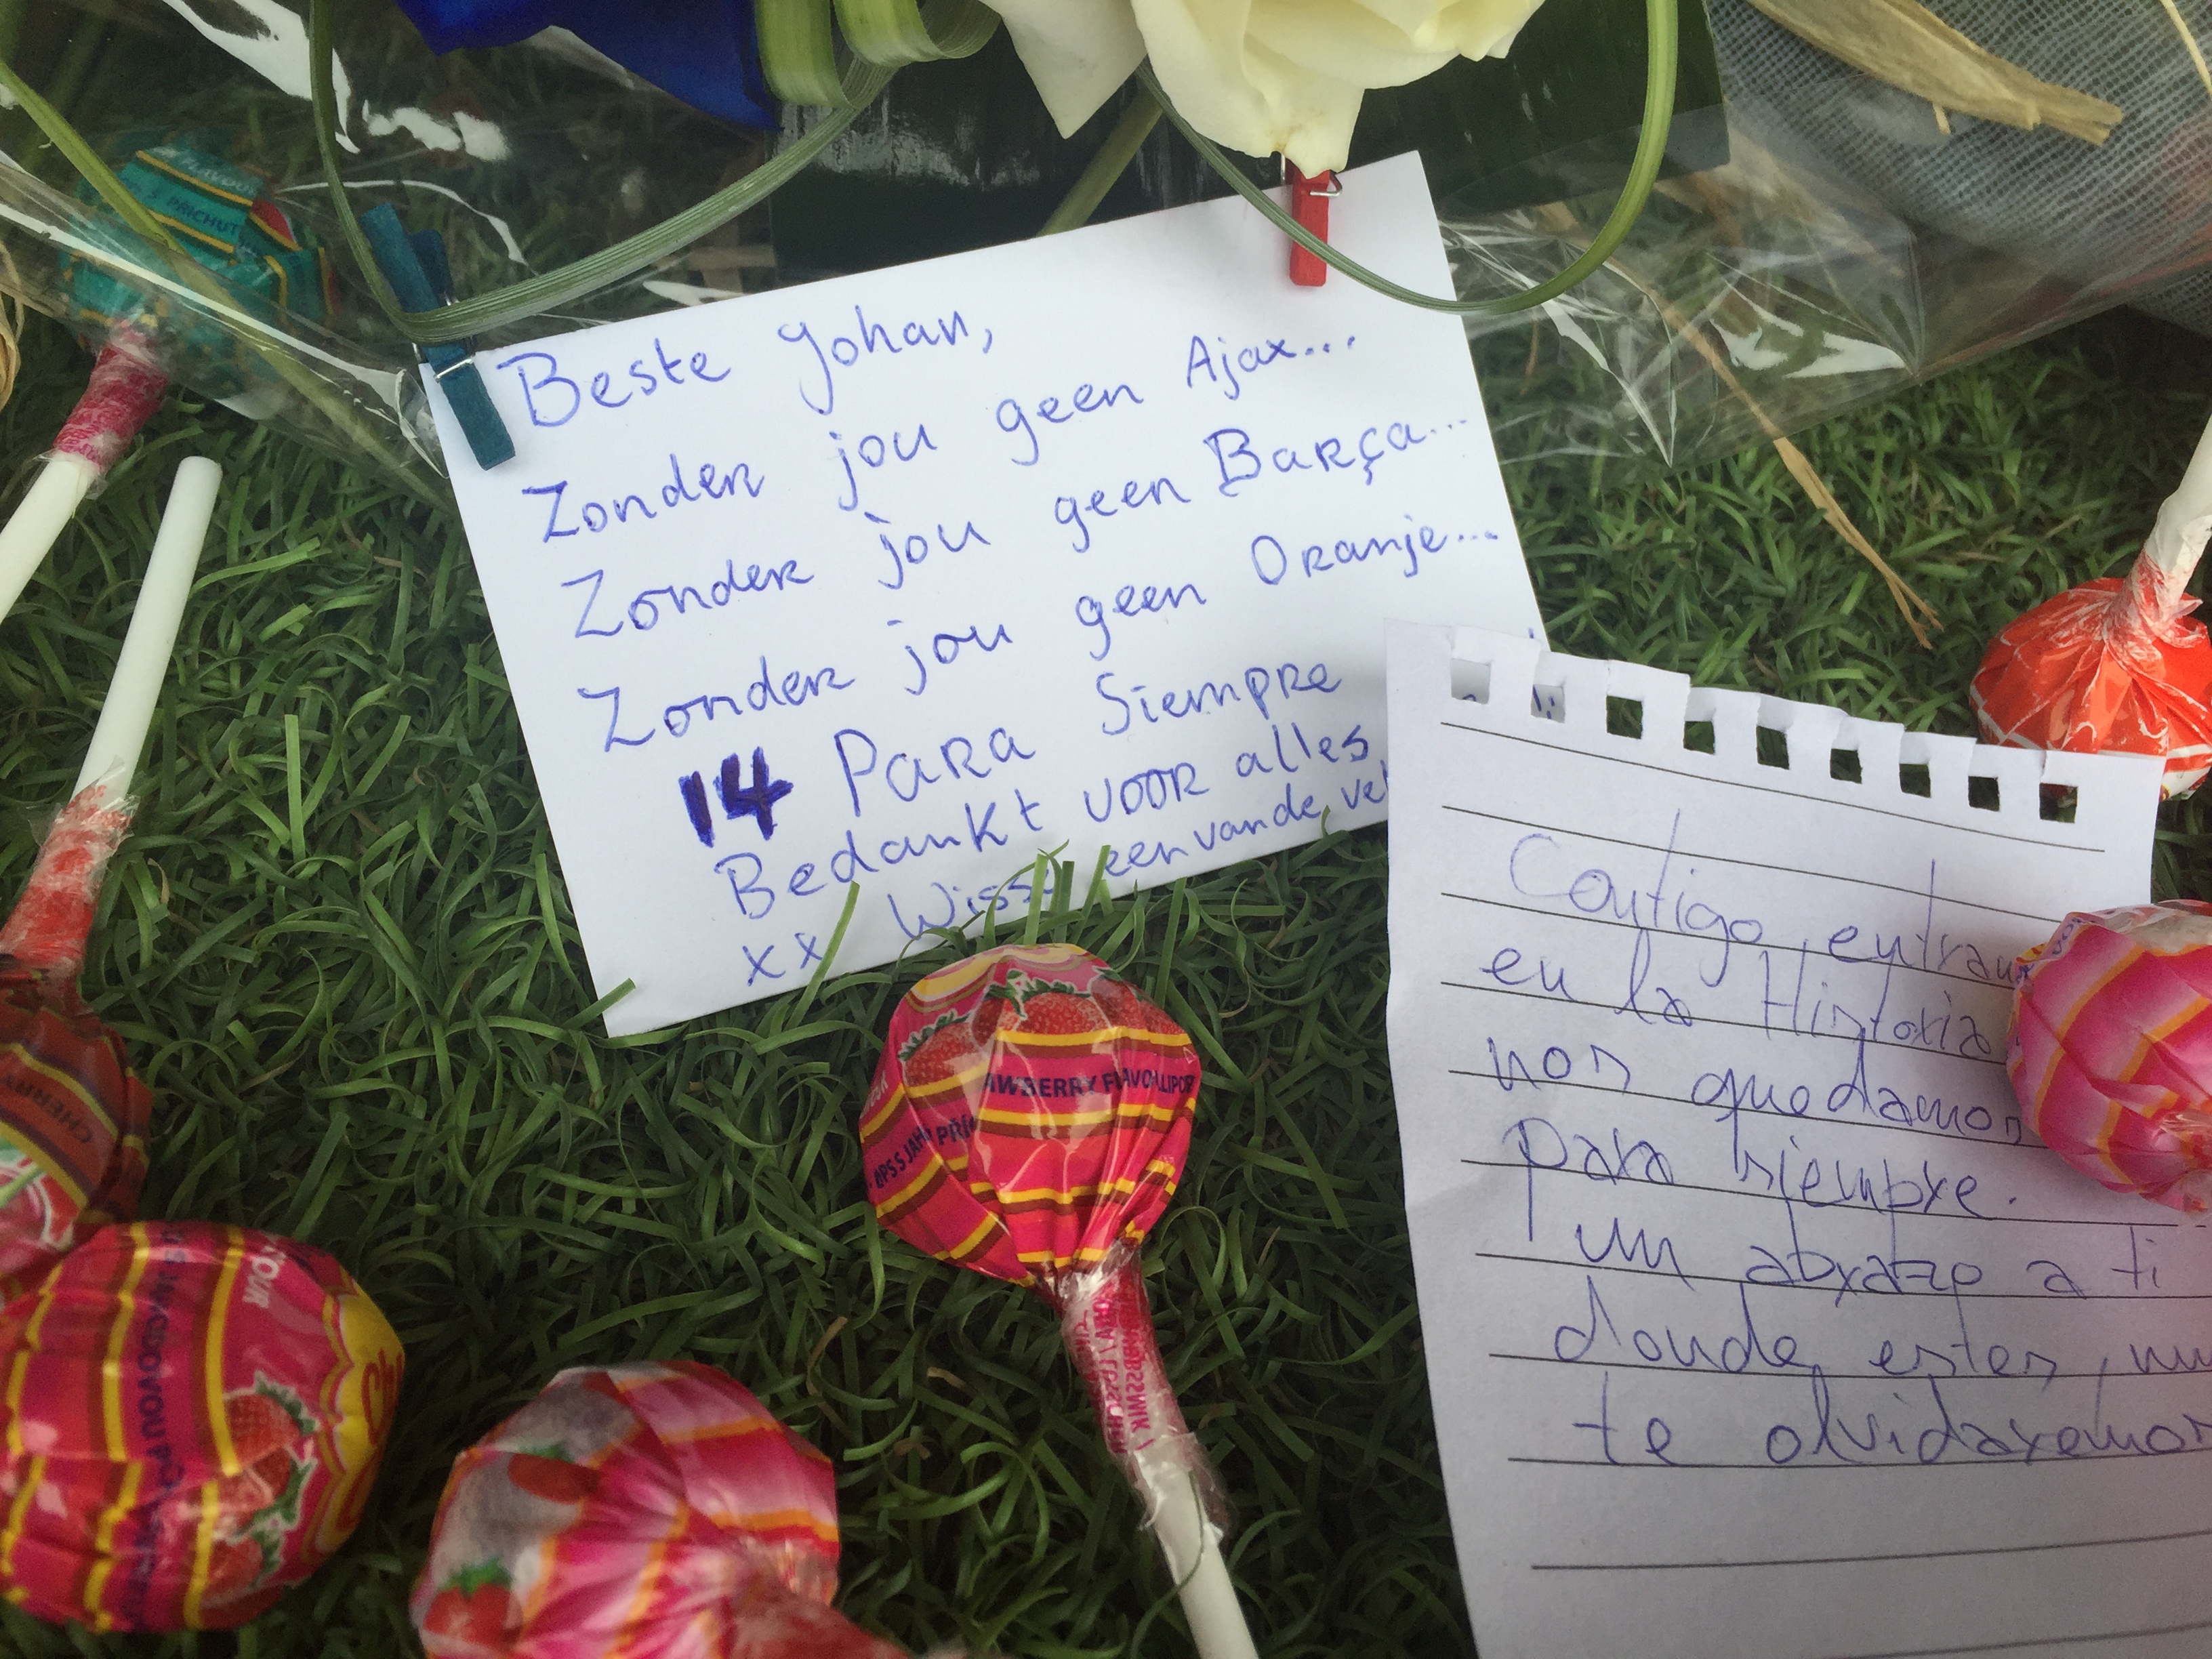 Beste Johan,
Zonder jou geen Ajax...
Zonder jou geen Barça...
Zonder jou geen Oranje...
14 Para Siempre
Bedankt voor alles
xx een van de
Contigo
en la Historia
nos quedamos
para siempre.
un abrazo a ti
donde estes,
te olvidaremos
AWBERRY FLAVO
CHERRY
PRICHUT